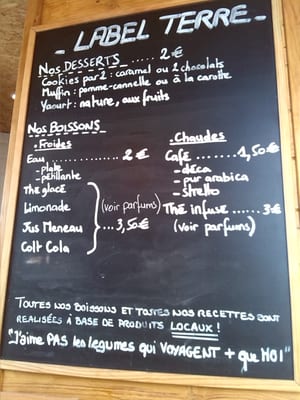 - LABEL TERRE -
Nos DESSERTS ..... 2€
Cookies par 2 : caramel ou 2 chocolats
Muffin : pomme-cannelle ou à la carotte
Yaourt : nature, aux fruits
Nos BOISSONS
. Froides
Eau ............ 2€
- plate
- pétillante
Thé glacé
Limonade (voir parfums)
Jus Meneau ...3,50€
Colt Cola
. Chaudes
Café ......1,50€
- déca
- pur arabica
- stretto
Thé infusé ...... 3€
(voir parfums)
TOUTES NOS BOISSONS ET TOUTES NOS RECETTES SONT
REALISÉES À BASE DE PRODUITS LOCAUX !
"J'aime PAS les légumes qui VOYAGENT + que MOI"